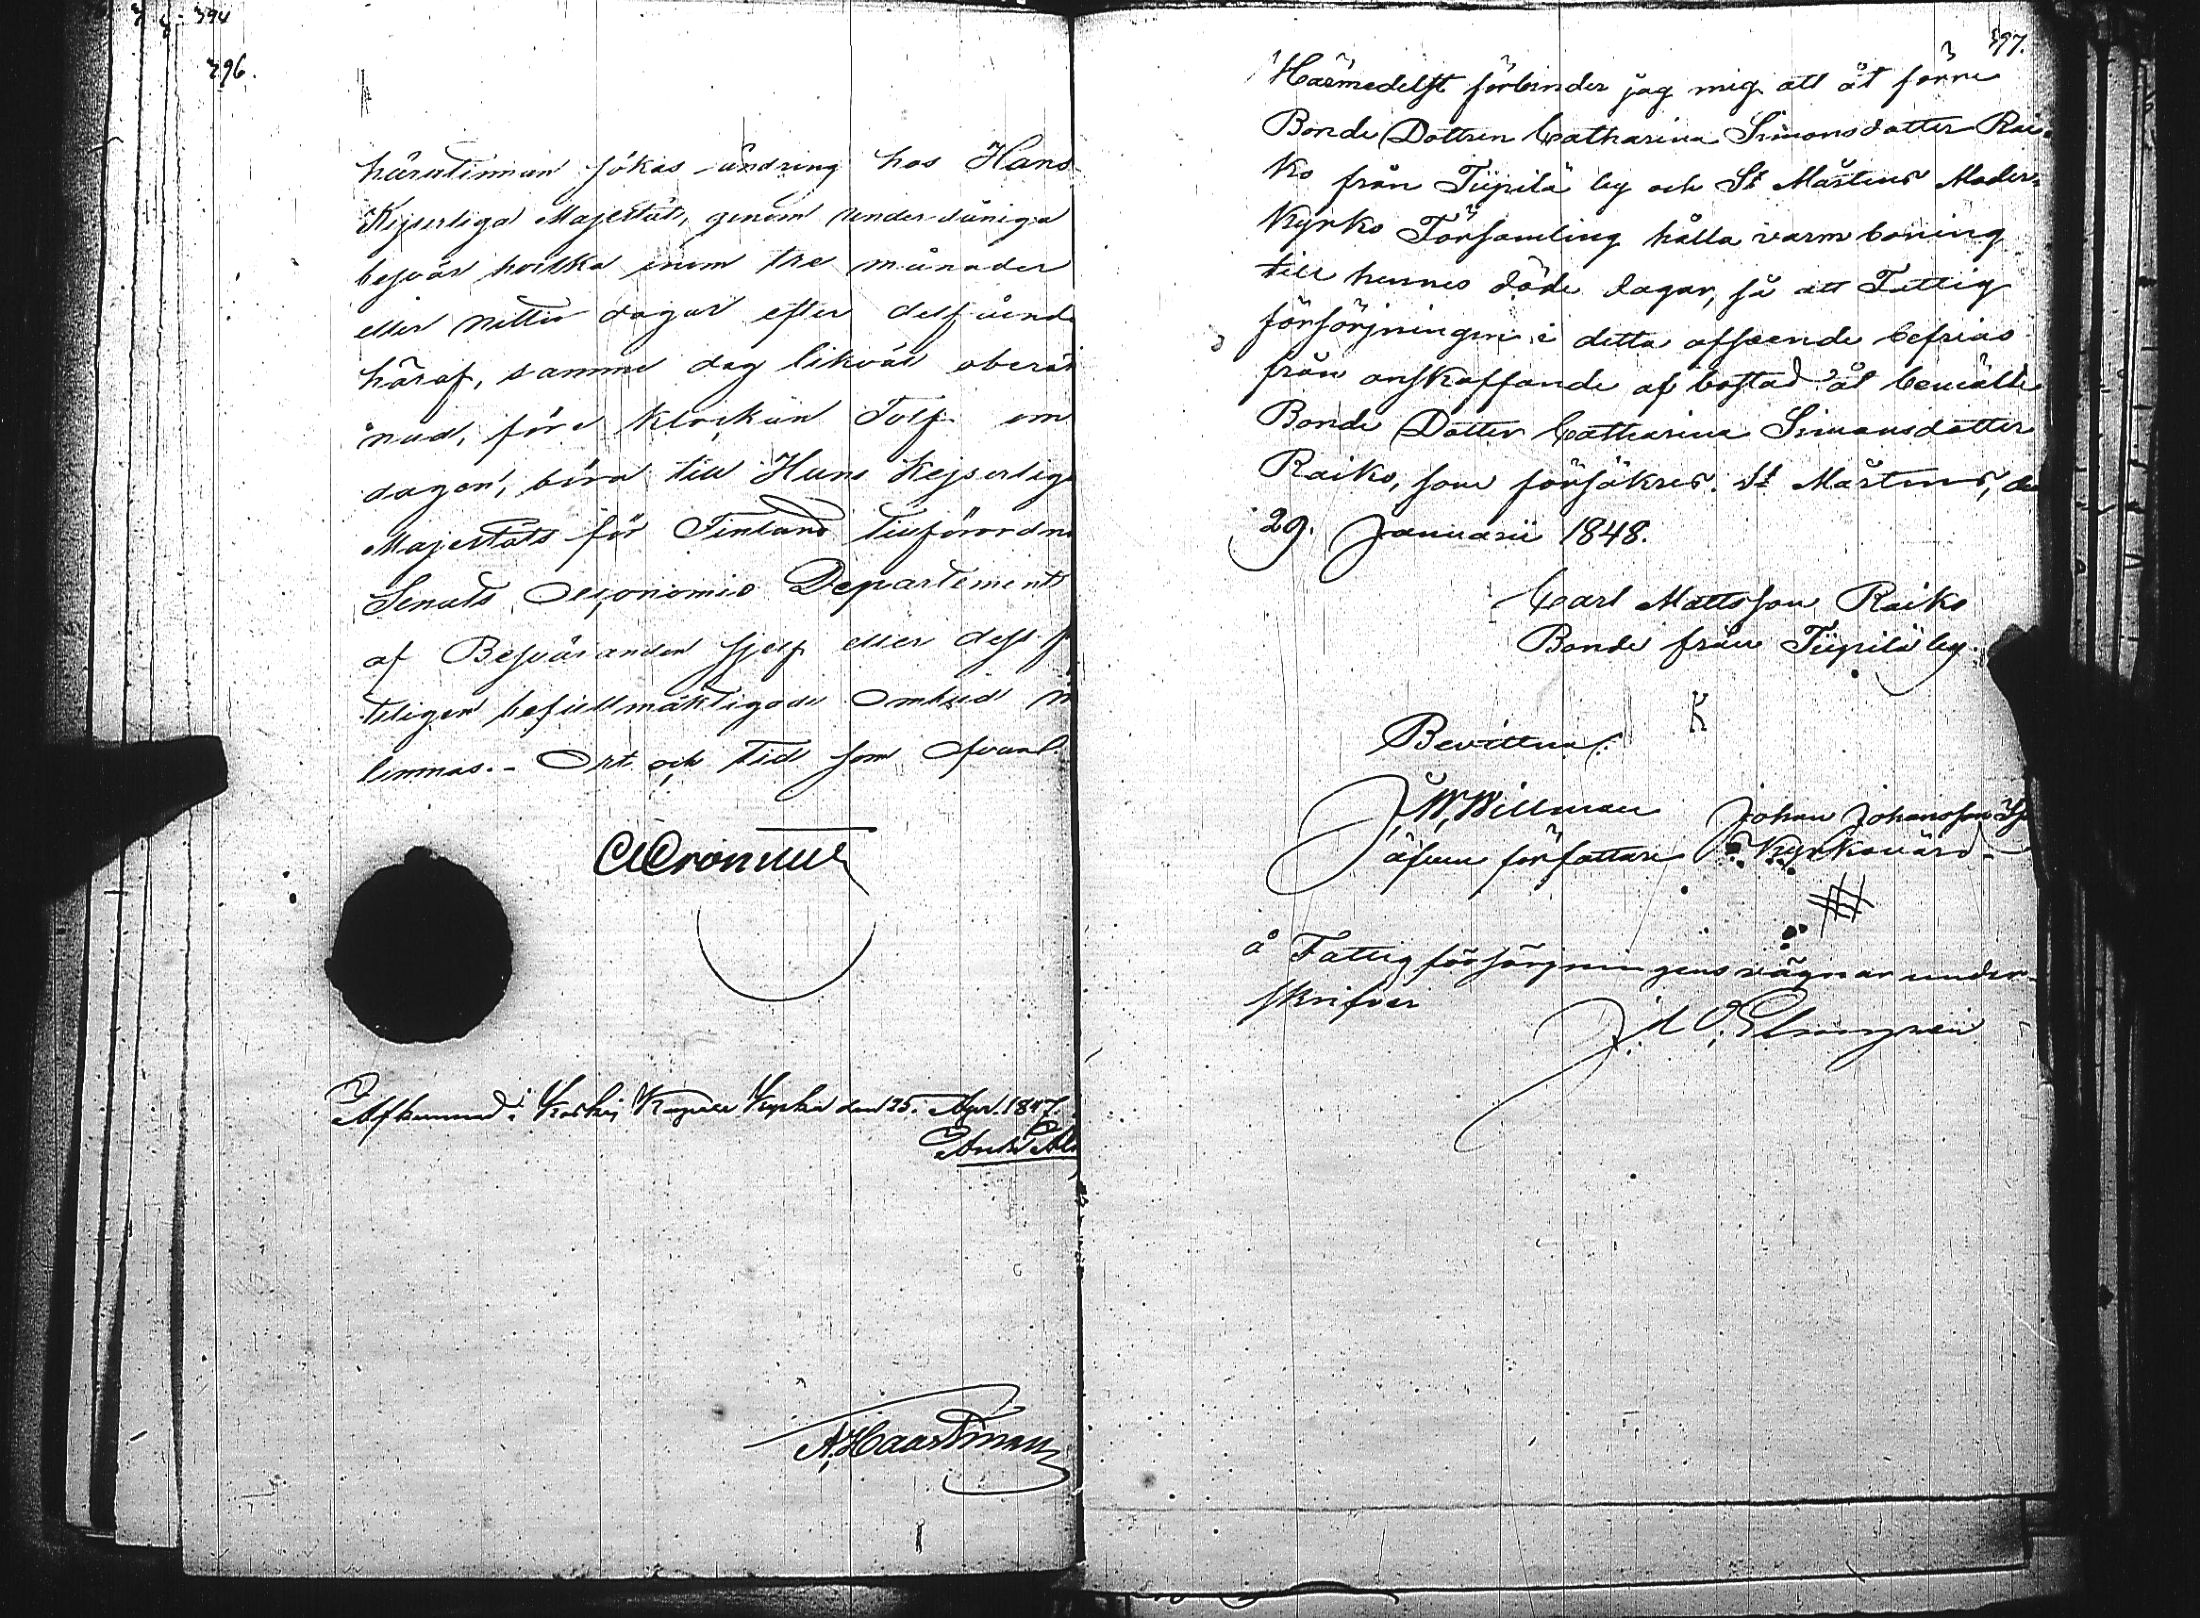 394
396.
härutinnan sökas ändring hos Hans
Kejserliga Majestät, genom underdåniga
besvär hvilka inom tre månader
eller nittio dagar efter delfående
häraf, samma dag likväl oberäk
nad, före klockan Tolf om
dagen, böra till Hans Kejserliga
Majestäts för Finland tillförordna
Senats Oeconomie Departement
af Besväranden sjelf eller dess
teligen befullmäktigade Ombud in
lemnas. - Ort och tid som ofvan.
Afkunnad i Koskis Kapell Kyrka den 25. Apr. 1847.
A. Haartman
397.
Härmedelst förbinder jag mig att åt förre
Bonde Dottren Catharina Simonsdotter Rai-
ko från Tiipilä by och St Mårtens Moder-
Kyrko Församling hålla varm boning
till hennes döde dagar, så att Fattig
försörjningen i detta afseende befrias
från anskaffande af bostad åt bemälte
Bonde Dotter Catharina Simonsdotter
Raiko, som försäkres. St Mårtens, den
29. Januarii 1848.
Carl Mattsson Raiko
Bonde från Tiipilä by.
K
Bevittna:
J. W. Willman Johan Johansson
äfven författare Kyrkovärd
å Fattigförsörjningens vägnar under-
skrifver
J. Elmgren